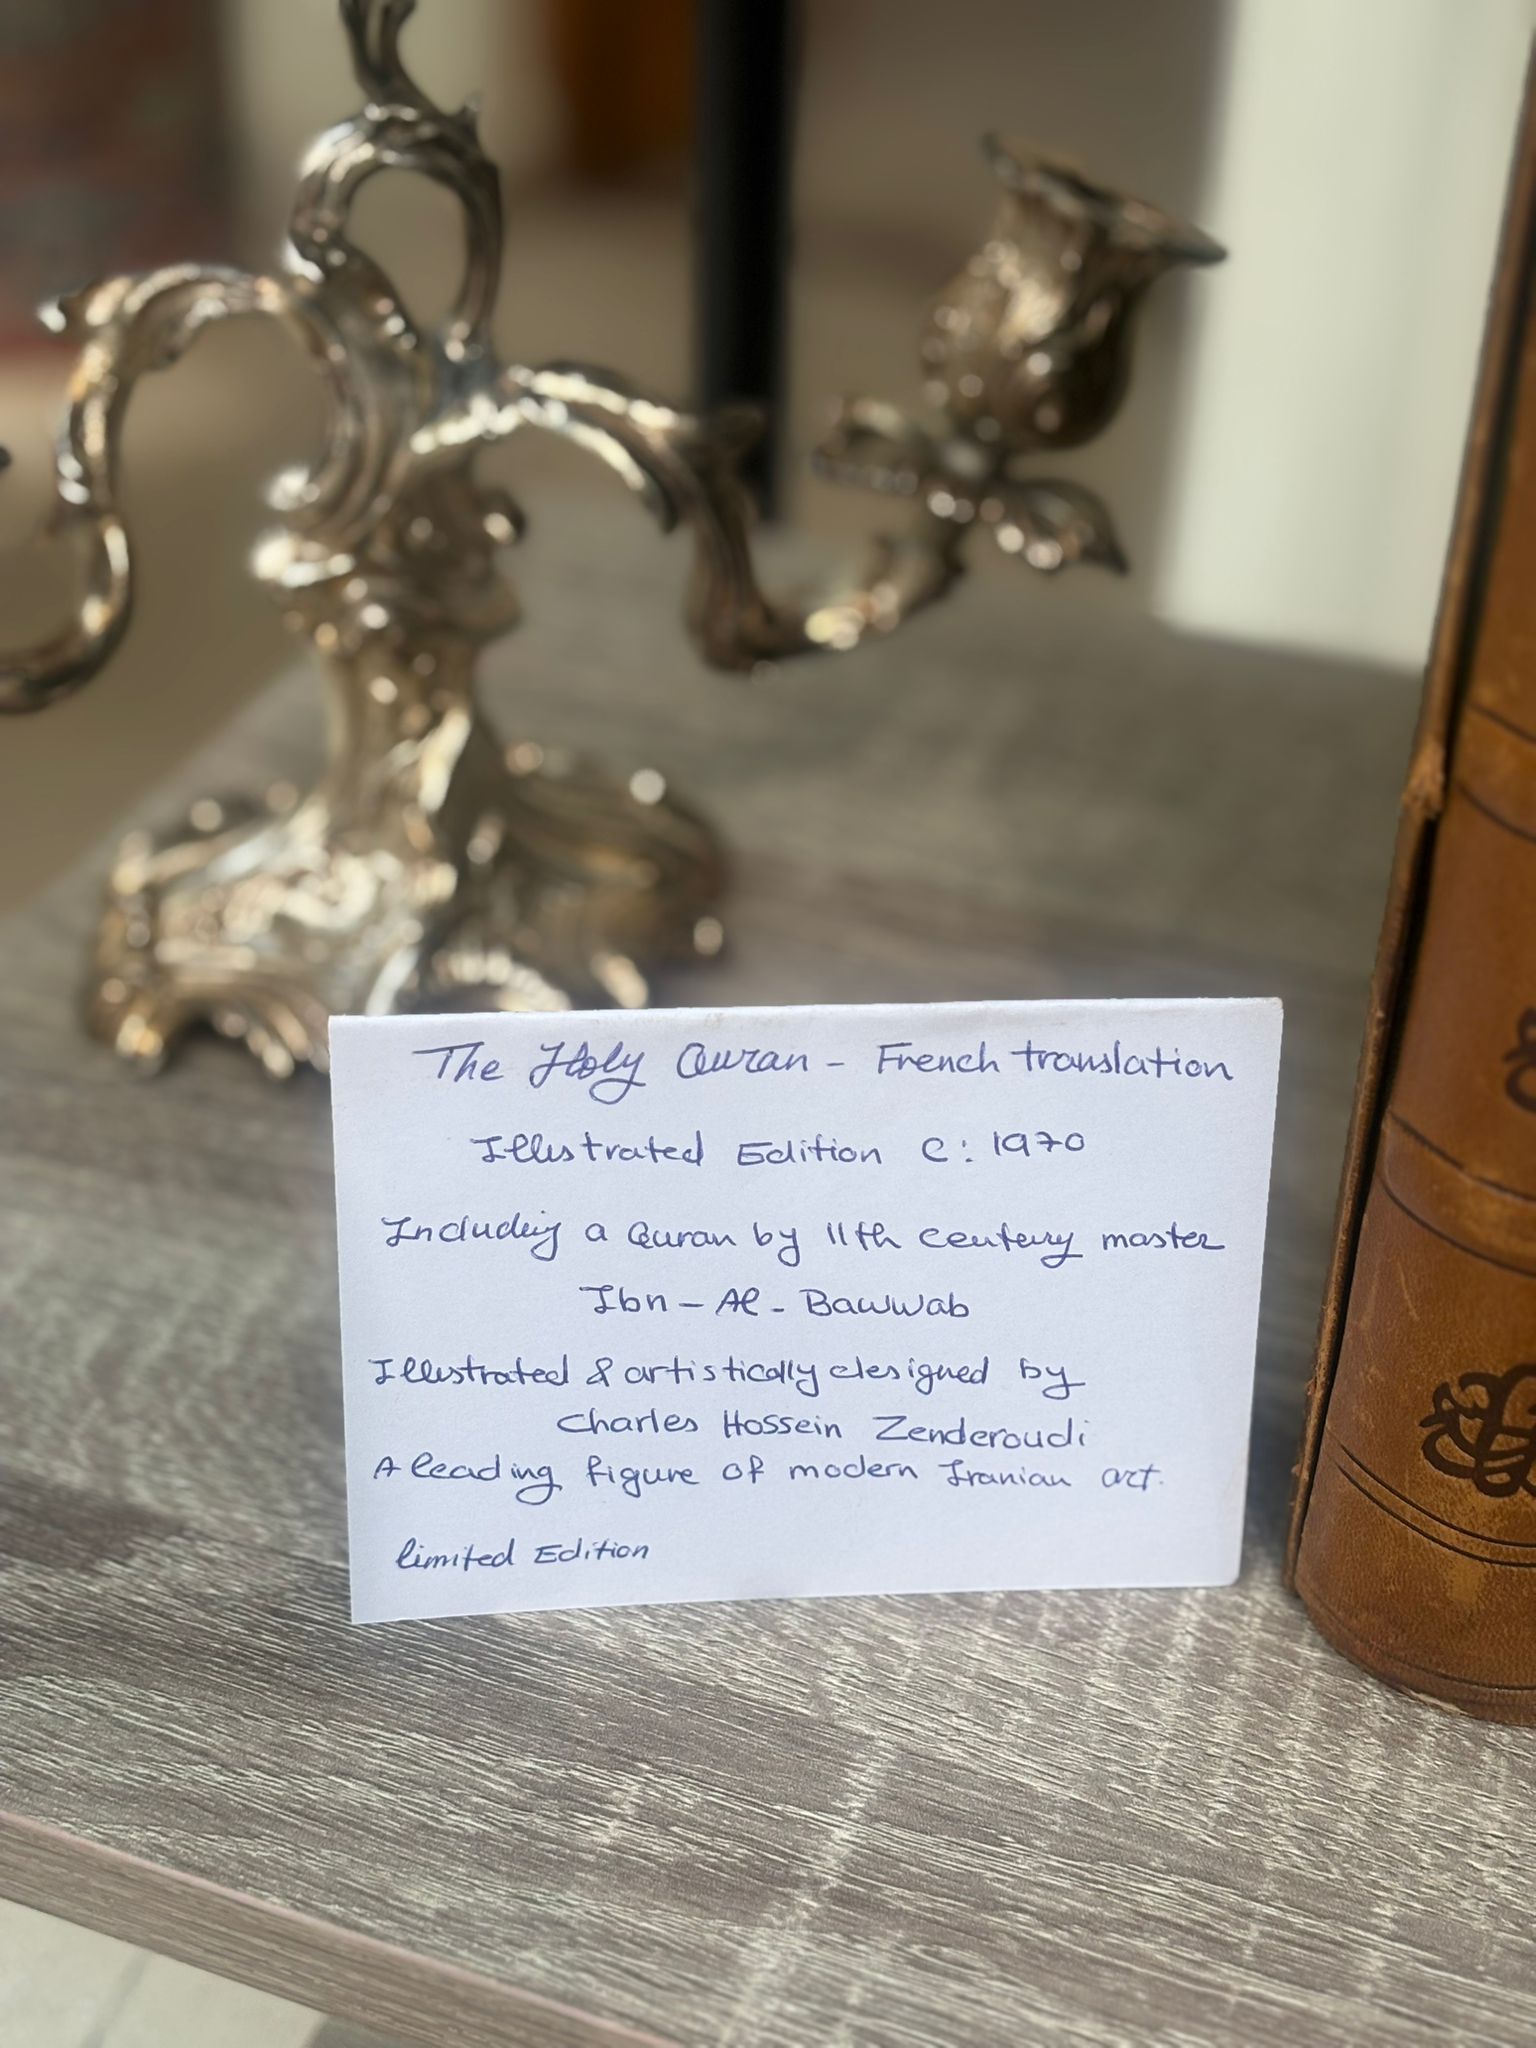 The Holy Quran - French translation
Illustrated Edition C: 1970
Including a Quran by 11th century master
Ibn - Al - Bawwab
Illustrated & artistically designed by
Charles Hossein Zenderoudi
A leading figure of modern Iranian art.
limited Edition